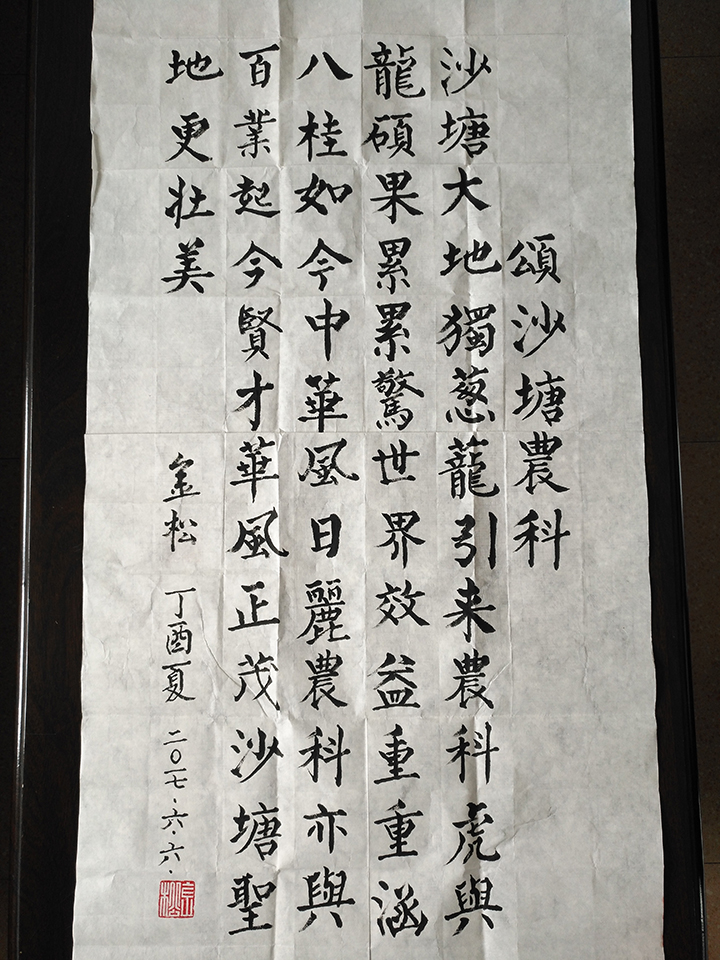 頌沙塘農科
沙塘大地獨葱蘢引来農科虎與
龍碩果累累驚世界效益重重涵
八桂如今中華風日麗農科亦與
百業起今賢才華風正茂沙塘聖
地更壮美
金松 丁酉夏 二〇一七、六、六、